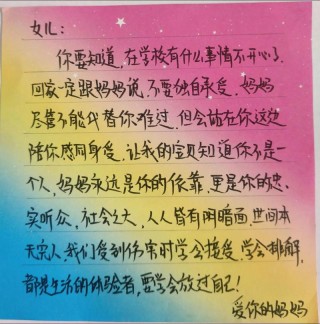 女儿：
你要知道，在学校有什么事情不开心了，
回家一定跟妈妈说，不要独自承受，妈妈
尽管不能代替你难过，但会站在你这边
陪你感同身受，让我的宝贝知道你不是一
个人，妈妈永远是你的依靠，更是你的忠
实听众，社会之大，人人皆有阴暗面，世间本
无完人，我们受到伤害时学会接受，学会排解，
都是生活的体验者，要学会放过自己！
爱你的妈妈